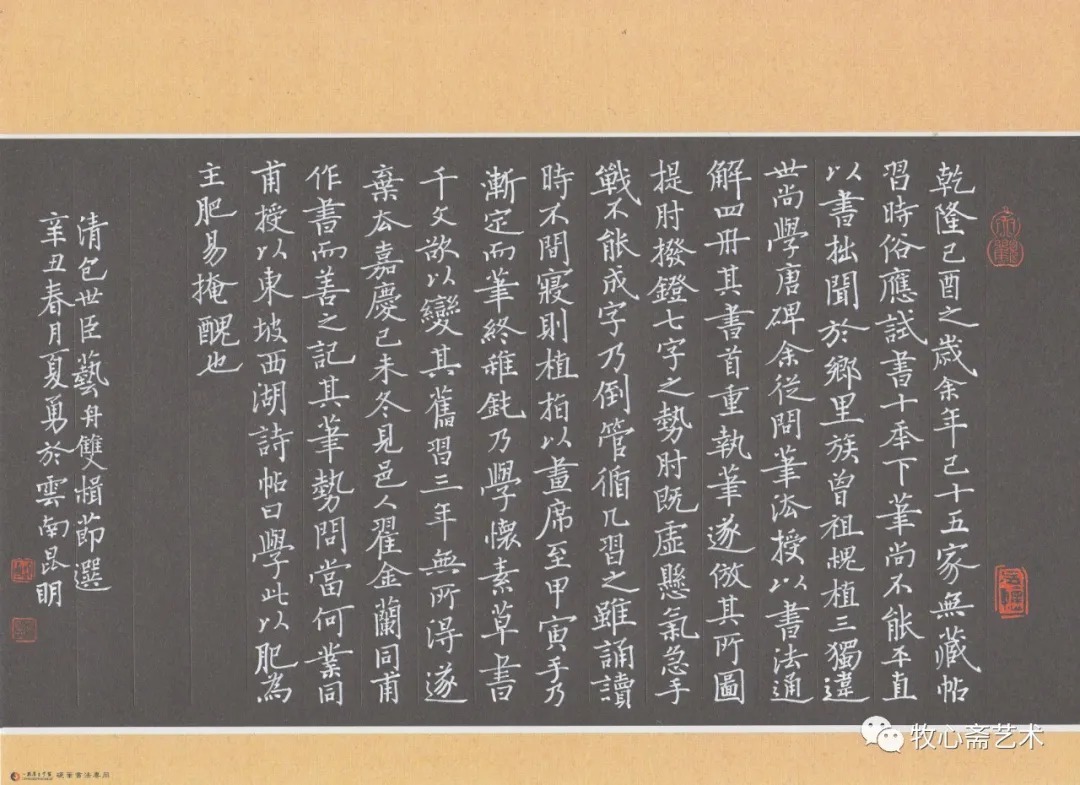 乾隆己酉之歲余年已十五家無藏帖
習時俗應試書十年下筆尚不能平直
以書拙聞於鄉里族曾祖槐植三獨違
世尚學唐碑余從問筆法授以書法通
解四冊其書首重執筆遂倣其所圖
提肘撥鐙七字之勢肘既虛懸氣急手
戰不能成字乃倒管循几習之雖誦讀
時不間寢則植指以畫席至甲寅手乃
漸定而筆終稚鈍乃學懷素草書
千文欲以變其舊習三年無所得遂
棄去嘉慶己未冬見邑人翟金蘭同甫
作書而善之記其筆勢問當何業同
甫授以東坡西湖詩帖曰學此以肥為
主肥易掩醜也
清包世臣藝舟雙楫節選
辛丑春月夏勇於雲南昆明
牧心斋艺术
硬筆書法專用